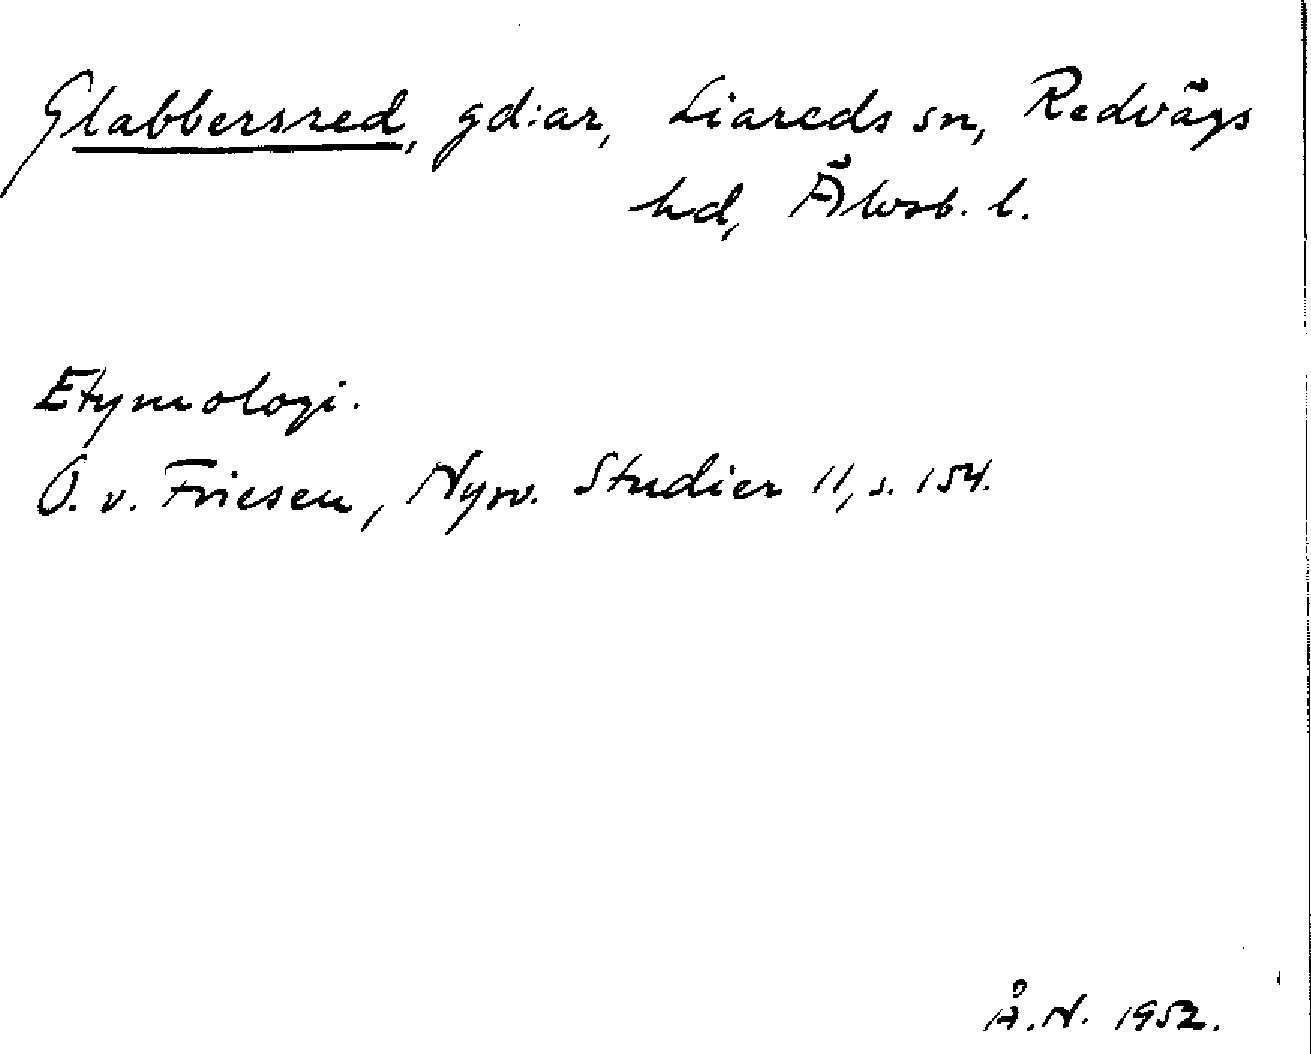 Glabbersred, gd:ar, Liareds sn, Redvägs
hd, Älvsb. l.
Etymologi.
O. v. Friesen, Nysv. Studier 11, s. 154.
Å. N. 1952.